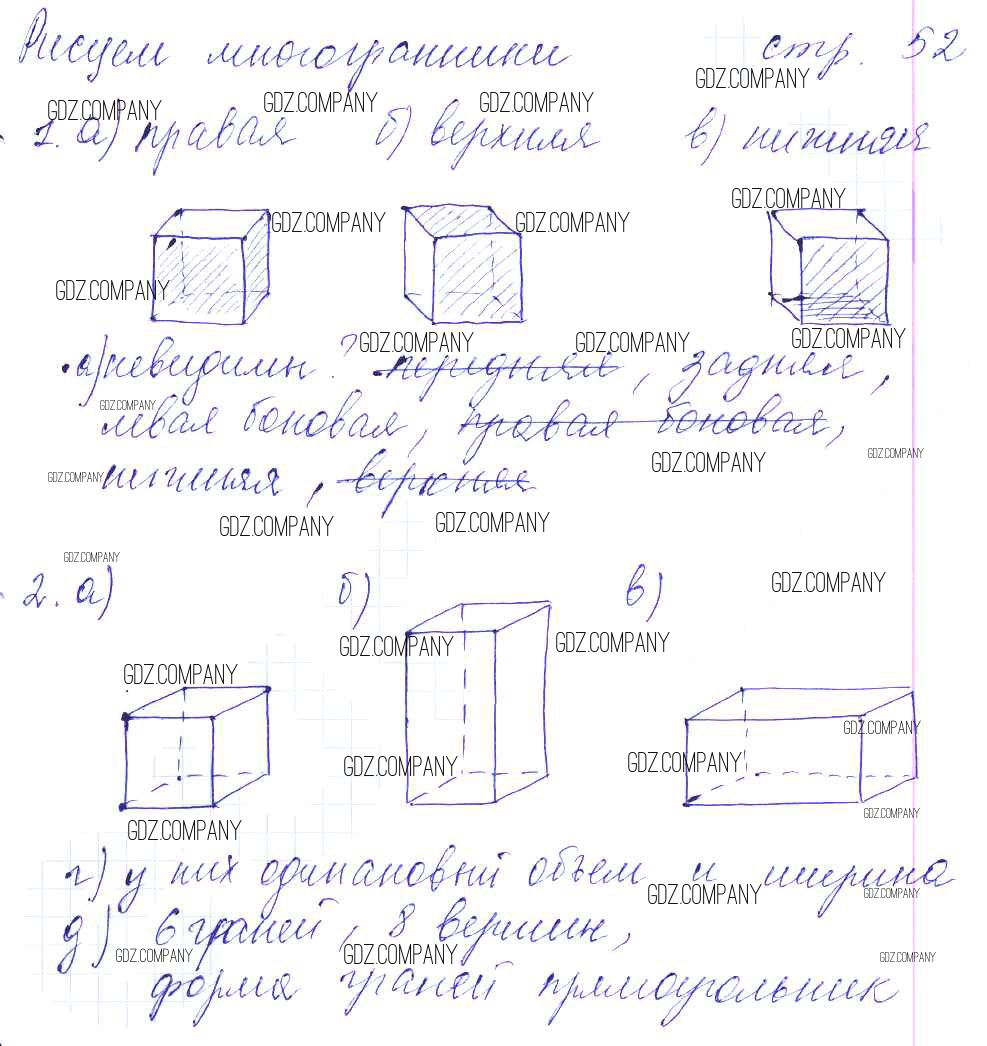 Рисуем многогранники стр. 52
GDZ.COMPANY
GDZ.COMPANY GDZ.COMPANY GDZ.COMPANY
1. а) правая б) верхняя в) нижняя
GDZ.COMPANY
GDZ.COMPANY GDZ.COMPANY
GDZ.COMPANY
GDZ.COMPANY GDZ.COMPANY GDZ.COMPANY
а) невидимы ? передняя, задняя,
GDZ.COMPANY
левая боковая, правая боковая,
GDZ.COMPANY GDZ.COMPANY
GDZ.COMPANY
нижняя, верхняя
GDZ.COMPANY GDZ.COMPANY
GDZ.COMPANY
2. а) б) в)
GDZ.COMPANY
GDZ.COMPANY GDZ.COMPANY
GDZ.COMPANY
GDZ.COMPANY
GDZ.COMPANY GDZ.COMPANY
GDZ.COMPANY
GDZ.COMPANY
г) у них одинаковый объем и ширина
GDZ.COMPANY GDZ.COMPANY
д) 6 граней, 8 вершин,
GDZ.COMPANY GDZ.COMPANY GDZ.COMPANY
форма граней прямоугольник